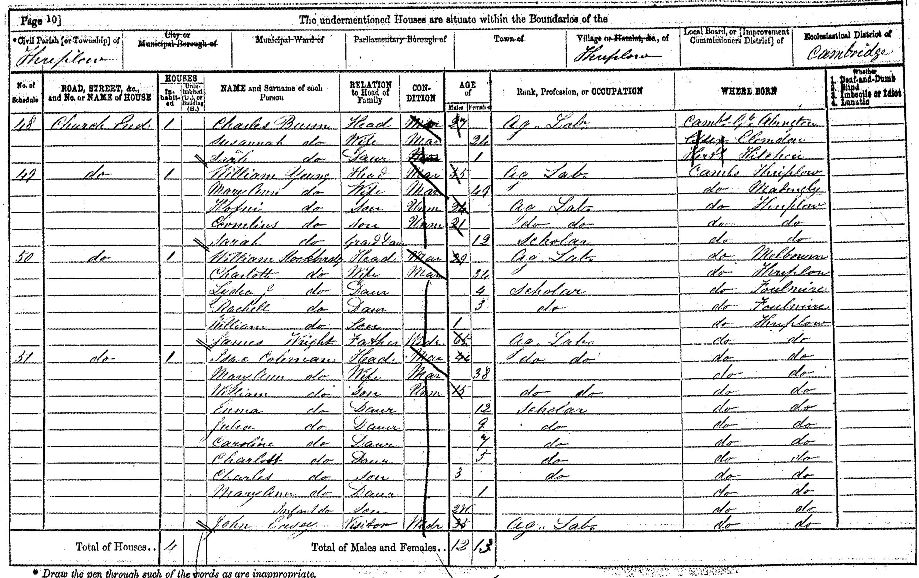 Page 10]
The undermentioned Houses are situate within the Boundaries of the
*Civil Parish [or Township] of
City or Municipal Borough of
Municipal Ward of
Parliamentary Borough of
Town of
Village or Hamlet, &c., of
Local Board, or [Improvement Commissioners District] of
Ecclesiastical District of
Thriplow
Thriplow
Cambridge
No. of Schedule
ROAD, STREET, &c., and No. or NAME of HOUSE
HOUSES
Inhabited
NAME and Surname of each Person
RELATION to Head of Family
CONDITION
AGE of
Males
Females
Rank, Profession, or OCCUPATION
WHERE BORN
Whether
1. Deaf-and-Dumb
2. Blind
3. Imbecile or Idiot
4. Lunatic
48 Church 1 Charles Head Mar 27 Ag. Lab. Cambs
Susannah do Wife Mar 26
do Daur 1 Herts Hitchin
49 do 1 William Young Head Mar Ag Lab. Cambs Thriplow
Mary Ann do Wife Mar 49 do
do Son Unm Ag Lab do Thriplow
Cornelius do Son Unm 21 do do do do
Sarah do 12 Scholar do do
50 do 1 William Head Mar 29 Ag. Lab. do Melbourn
Charlott do Wife Mar 26 do Thriplow
Lydia do Daur 4 Scholar do Foulmire
Rachell do Daur 3 do do Foulmire
William do Son 1 do Thriplow
James Wright Father Wdr 65 Ag. Lab. do do
51 do 1 Coleman Head Mar do do do do
Mary Ann do Wife Mar 38 do do
William do Son Unm 15 do do do do
Emma do Daur 12 Scholar do do
Julia do Daur 9 do do do
Caroline do Daur 7 do do do
Charlott do Daur 5 do do do
Charles do Son 3 do do do
Mary Ann do Daur 1 do do
Infant do Son do do
John Visitor Wdr Ag. Lab. do do
Total of Houses.. 4
Total of Males and Females.. 12 13
* Draw the pen through such of the words as are inappropriate.